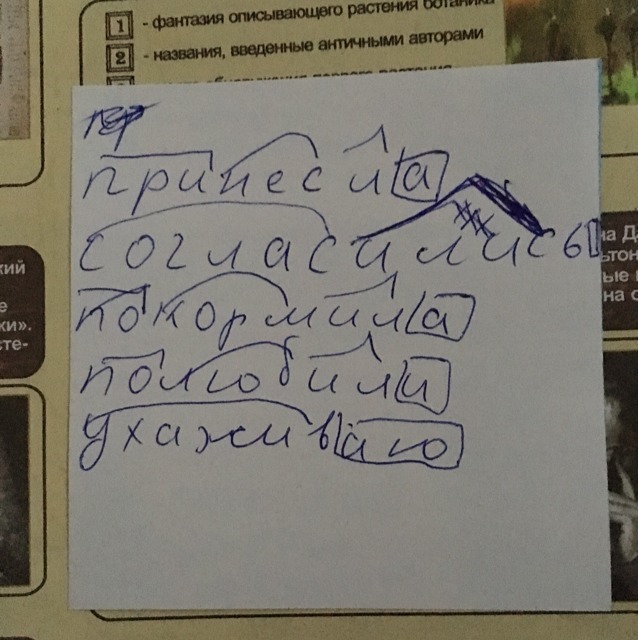 1 - фантазия описывающего растения ботаника
2 - названия, введенные античными авторами
принесла
согласились
покормила
полюбили
ухаживаю
кий
е
ки».
сте-
на Д
ьтон
ые
на с